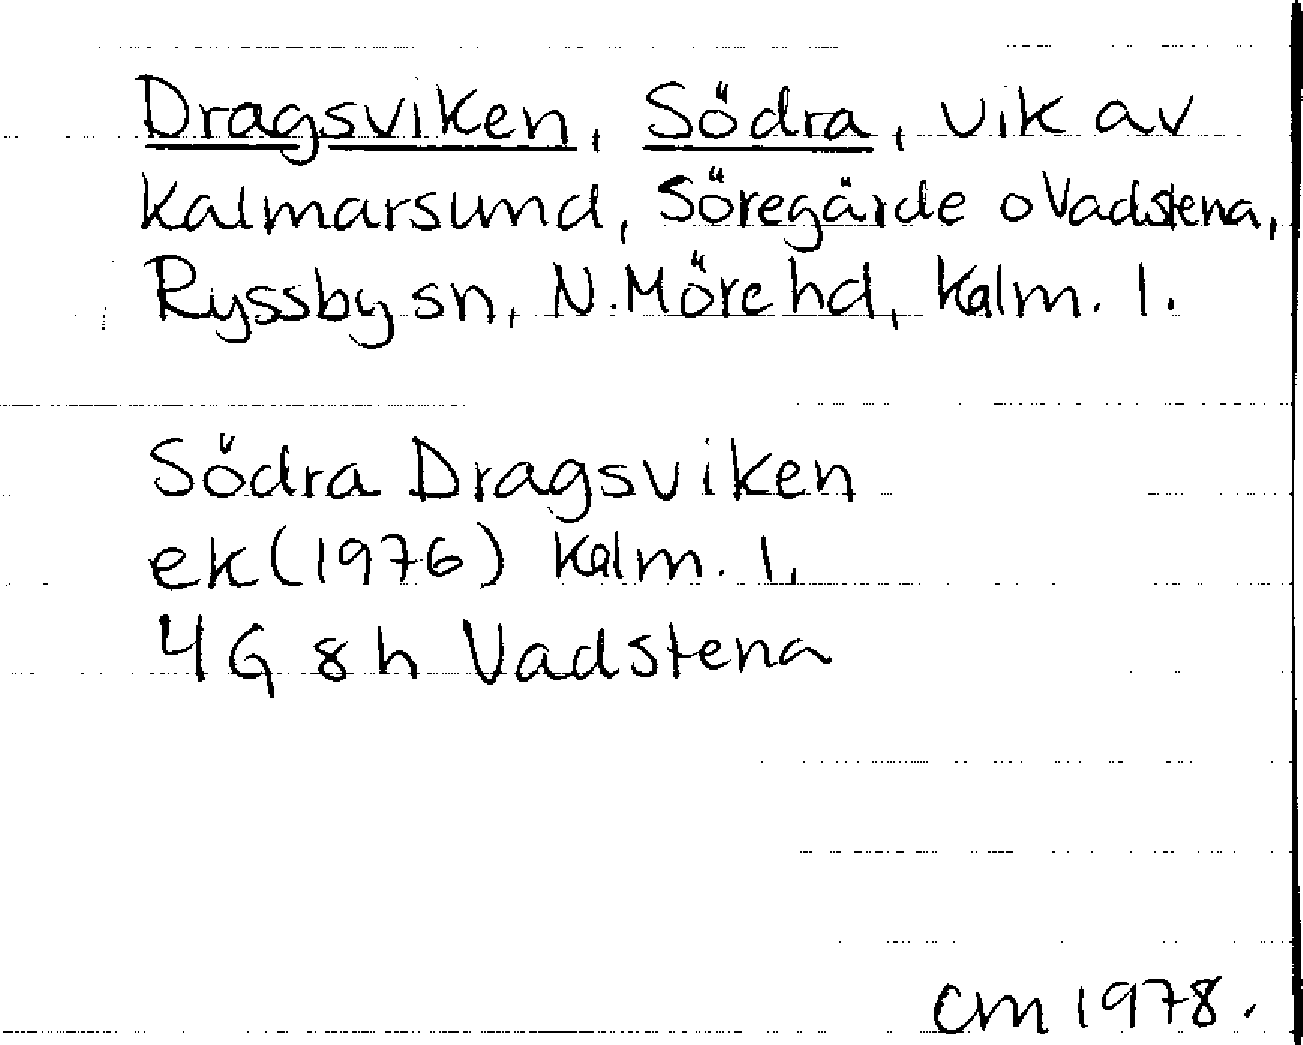 Dragsviken, Södra, vik av
Kalmarsund, Söregärde o Vadstena,
Ryssby sn, N. Möre hd, Kalm. l.
Södra Dragsviken
ek (1976) Kalm. l.
4G 8h Vadstena
CM 1978.